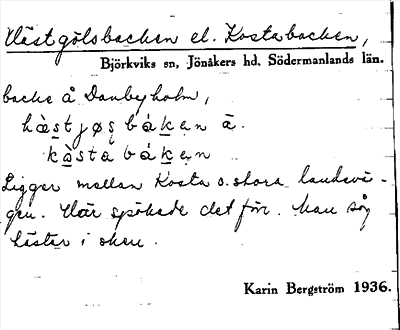 Hästgölsbacken el. Kostabacken,
Björkviks sn, Jönåkers hd. Södermanlands län.
backe å Danbyholm,
hæstjøs báken ā.
kåsta báken
Ligger mellan Kosta o. stora landsvä-
gen. Här spökade det förr. Man såg
hästar i sken.
Karin Bergström 1936.